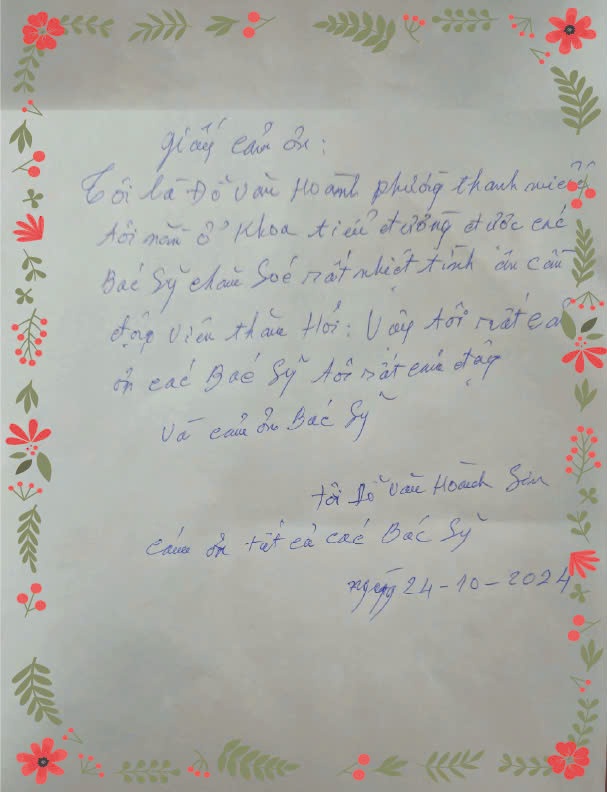 giấy cảm ơn:
Tôi là Đỗ Văn Hoành phường thanh miếu
tôi nằm ở khoa tiểu đường được các
Bác Sỹ chăm Soć rất nhiệt tình ân cần
động viên thăm Hỏi: Vậy tôi rất cảm
ơn các Bác Sỹ tôi rất cảm động
và cảm ơn Bác Sỹ
tôi Đỗ Văn Hoành Xin
cảm ơn tất cả các Bác Sỹ
ngày 24-10-2024